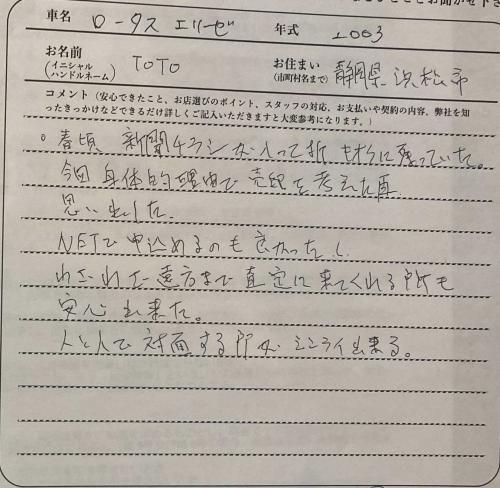 車名 ロータス エリーゼ 年式 2003
お名前 (イニシャル ハンドルネーム) TOTO お住まい (市町村名まで) 静岡県 浜松市
コメント (安心できたこと、お店選びのポイント、スタッフの対応、お支払いや契約の内容、弊社を知
ったきっかけなどできるだけ詳しくご記入いただきますと大変参考になります。)
。春頃、新聞チラシが入って折、も残っていた。
今回 身体的理由で 売却を考えた直
思い出した。
NETで申込めるのも良かったし
わざわざ遠方まで査定に来てくれる所も
安心出来た。
人と人で対面する所が シンライ出来る。